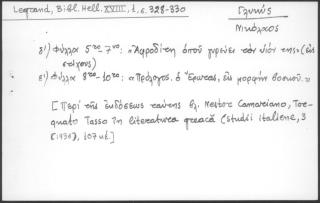 Legrand, Bibl. Hell. XVIII, 1, σ. 328-330
Γλυκύς
Νικόλαος
δ') Φύλλα 5ʳᵒ-7ʳᵒ: "Ἀφροδίτη ὁποῦ γυρεύει τὸν υἱόν της" (εἰς
στίχους)
ε') Φύλλα 8ʳᵒ-10ʳᵒ: "Πρόλογος, ὁ Ἔρωτας, εἰς μορφὴν βοσκοῦ."
[Περὶ τῆς ἐκδόσεως ταύτης βλ. Nestor Camariano, Tor-
quato Tasso în literatura greacă (Studii italiene, 3
(1936), 107 κἑ.]